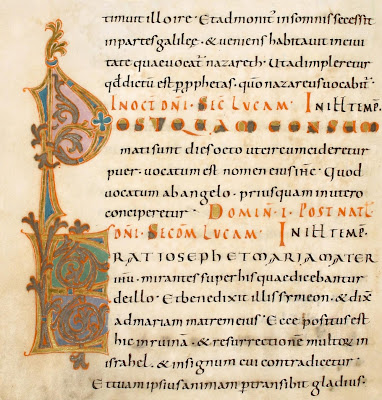 timuit illo ire · Et admonit' insomnis secessit
inpartes galileę · & veniens habitavit incivi
tate quae vocat' nazareth · Ut adimpleretur
qđ dictū est p pphetas · qm̄o nazareus vocabit'
IN OCT DN̄I · SEC̄ LUCAM · IN ILL TEMP̄
POSTQUAM CONSUM
mati sunt dies octo ut circumcideretur
puer · vocatum est nomen eius ih̄c · Quod
vocatum ab angelo · priusquam in utero
conciperetur · DOMIN̄ · I · POST NAT̄
DN̄I · SECD̄M LUCAM · IN ILL TEMP̄
ERAT IOSEPH ET MARIA MATER
ih̄u · mirantes super his quae dicebantur
de illo · Et benedixit illis symeon · & dix̄
ad mariam matrem eius · Ecce positus est
hic in ruina · & resurrectionem multor̄ in
israhel · & in signum cui contradicetur ·
Et tuam ipsius animam ptransibit gladius ·